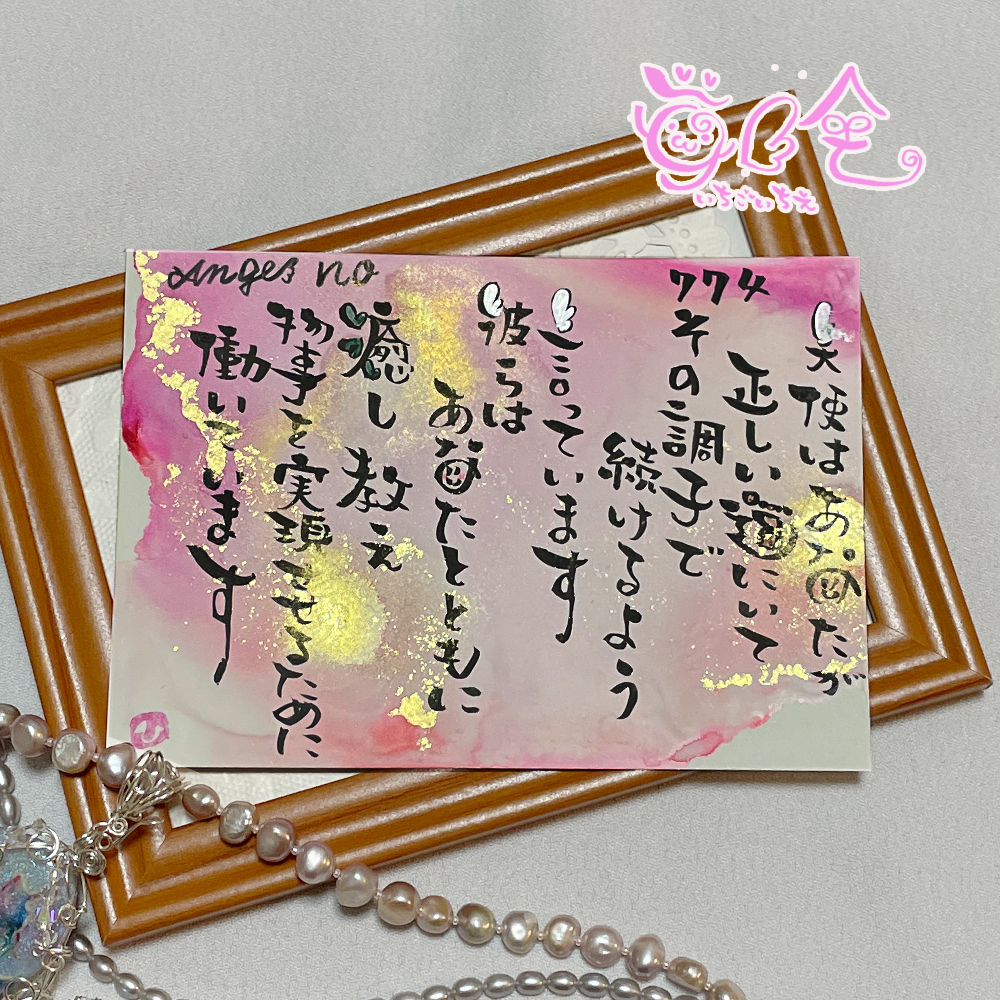 Anges no
774
天使はあなたが
正しい道にいて
その調子で
続けるよう
言っています
彼らは
あなたとともに
癒し 教え
物事を実現させるために
働いています
いちごいちえ